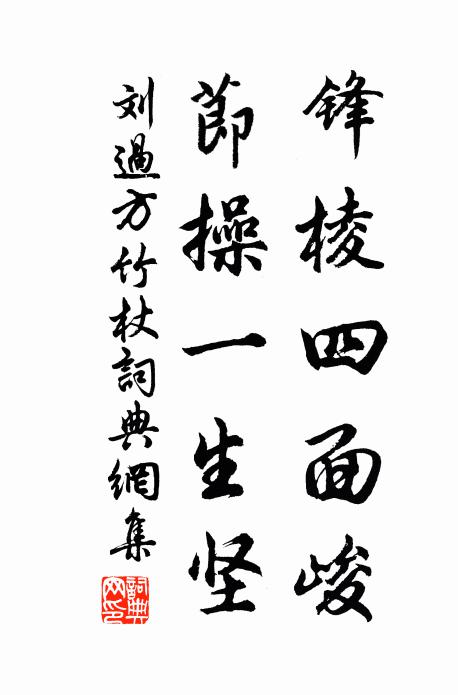 锋棱四面峻
节操一生坚
刘過方竹杖詞典網集
詞典网印